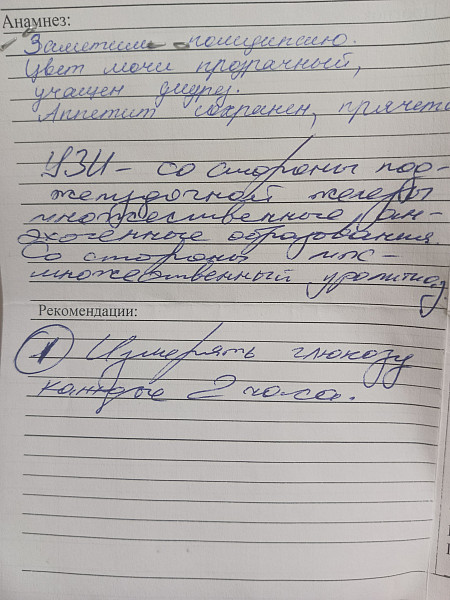 Анамнез:
Заметили полидипсию.
Цвет мочи прозрачный,
учащен диурез.
Аппетит сохранен, прячется
УЗИ - со стороны под-
желудочной железы
множественные ан-
эхогенные образования.
Со стороны мпс -
множественный уролитиаз
Рекомендации:
1 Измерять глюкозу
каждые 2 часа.